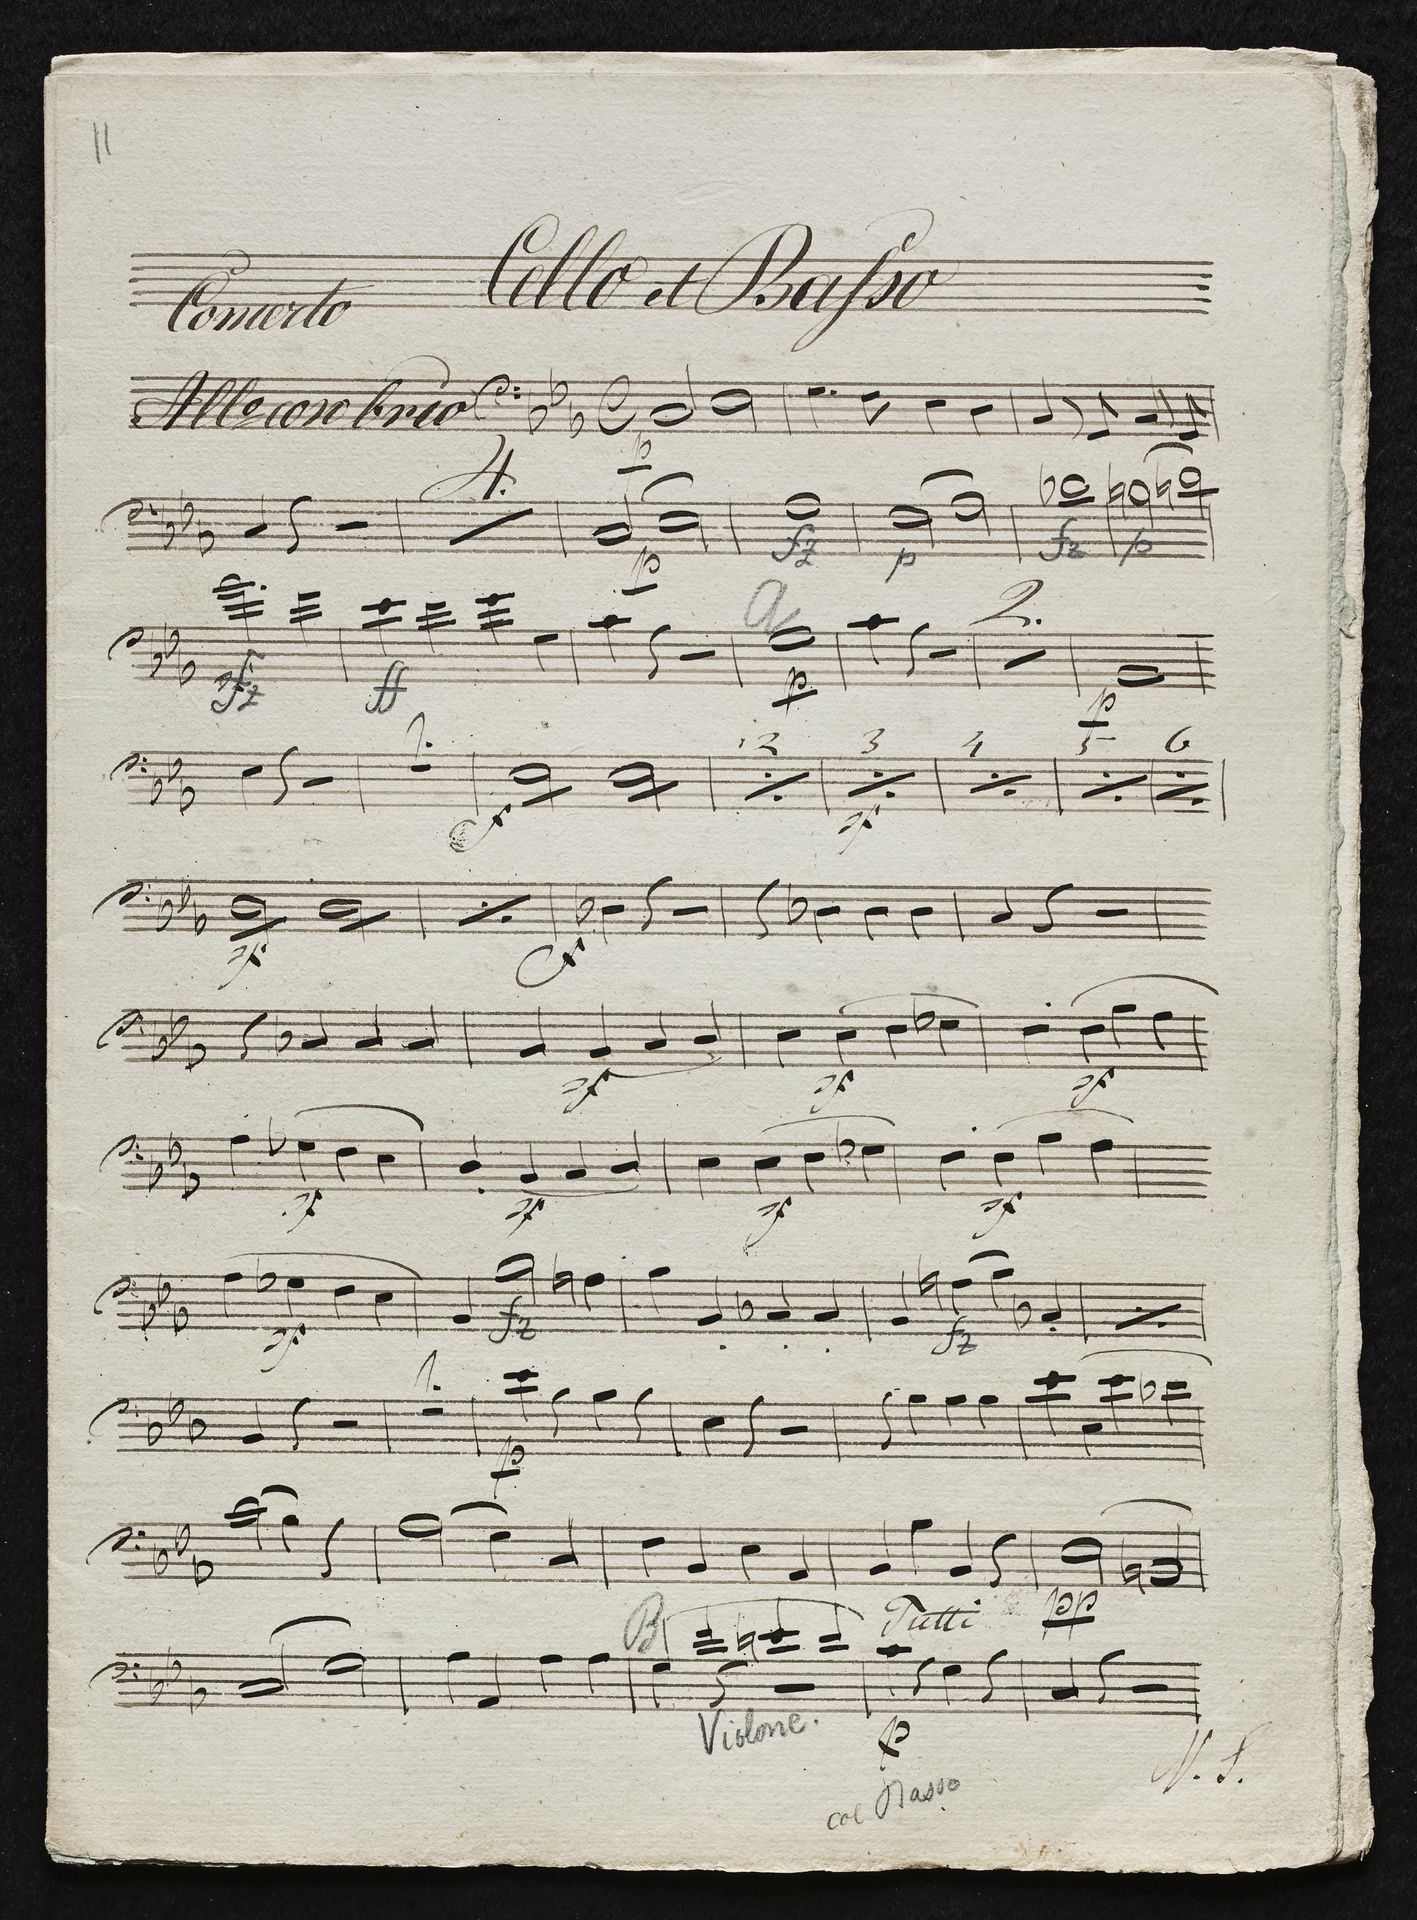 11
Cello et Basso
Concerto
Allo con brio
p
4.
p fz p fz p
a 2.
sfz ff p p
1. 2 3 4 5 6
f sf
sf f
sf sf sf
sf sf sf sf
sf fz fz
1.
p
pp
B Tutti
Violone. p
col Basso
V. S.